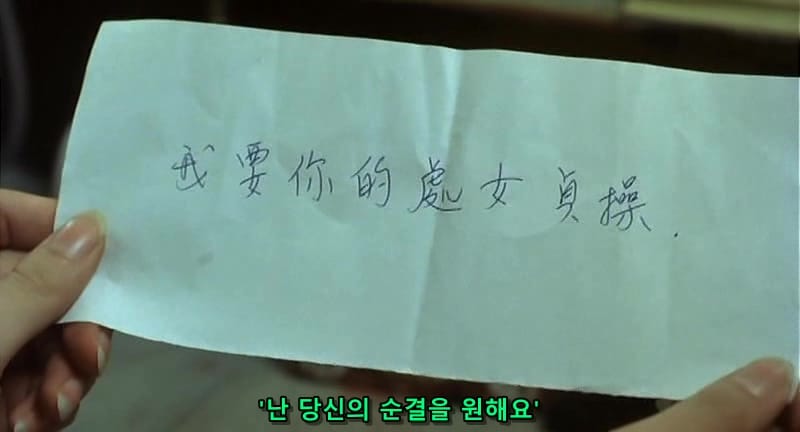 我要你的處女貞操.
'난 당신의 순결을 원해요'